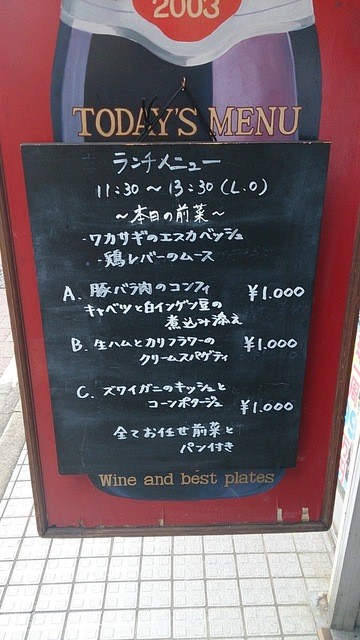 2003
TODAY'S MENU
ランチメニュー
11:30 ~ 13:30 (L.O)
~本日の前菜~
・ワカサギのエスカベッシュ
・鶏レバーのムース
A. 豚バラ肉のコンフィ ¥1.000
キャベツと白インゲン豆の
煮込み添え
B. 生ハムとカリフラワーの ¥1.000
クリームスパゲティ
C. ズワイガニのキッシュと
コーンポタージュ
¥1.000
全てお任せ前菜と
パン付き
Wine and best plates